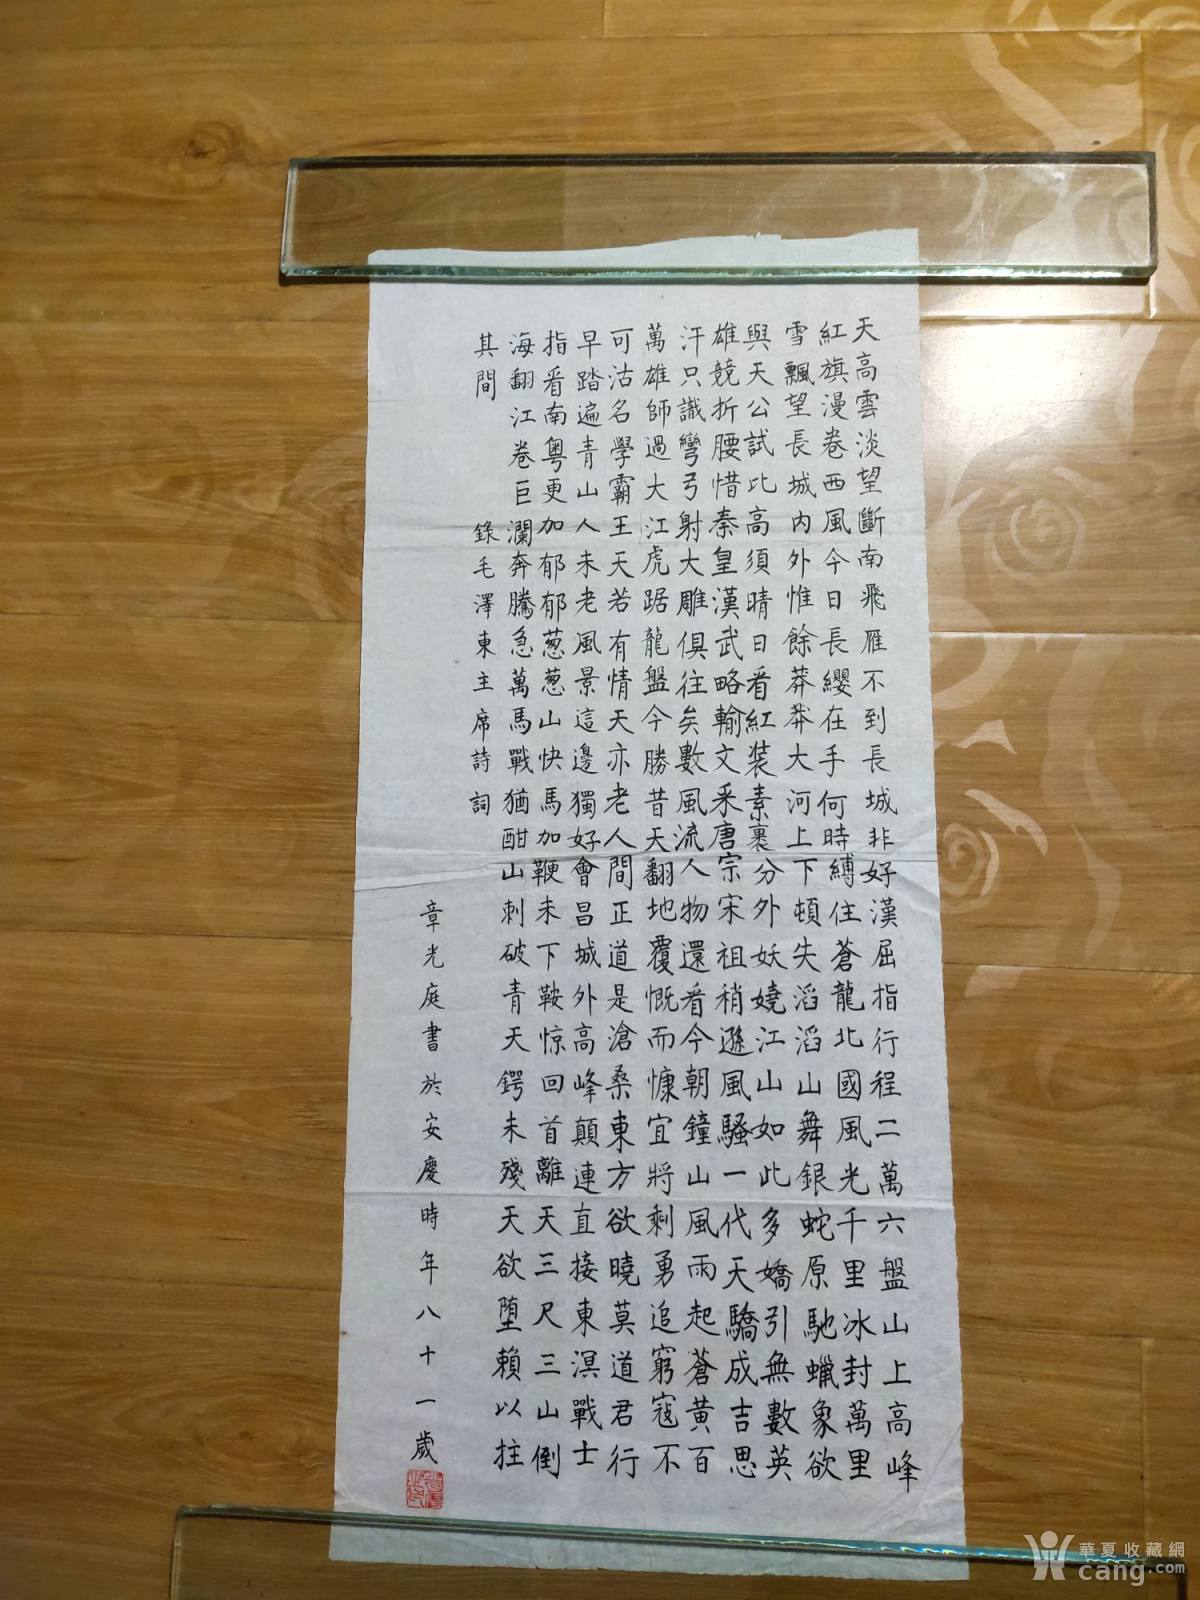 天高雲淡望斷南飛雁不到長城非好漢屈指行程二萬六盤山上高峰
紅旗漫卷西風今日長纓在手何時縛住蒼龍北國風光千里冰封萬里
雪飄望長城內外惟餘莽莽大河上下頓失滔滔山舞銀蛇原馳蠟象欲
與天公試比高須晴日看紅装素裹分外妖嬈江山如此多嬌引無數英
雄競折腰惜秦皇漢武略輸文采唐宗宋祖稍遜風騷一代天驕成吉思
汗只識彎弓射大雕俱往矣數風流人物還看今朝鐘山風雨起蒼黃百
萬雄師過大江虎踞龍盤今勝昔天翻地覆慨而慷宜將剩勇追窮寇不
可沽名學霸王天若有情天亦老人間正道是滄桑東方欲曉莫道君行
早踏遍青山人未老風景這邊獨好會昌城外高峰顛連直接東溟戰士
指看南粵更加郁郁葱葱山快馬加鞭未下鞍惊回首離天三尺三山倒
海翻江卷巨瀾奔騰急萬馬戰猶酣山刺破青天鍔未殘天欲堕賴以拄
其間 錄毛澤東主席詩詞
章光庭書於安慶時年八十一歲
華夏收藏網
cang.com